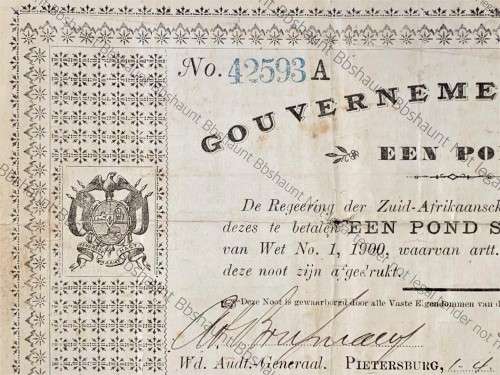 No. 42593 A
GOUVERNEME
EEN PO
De Regeering der Zuid-Afrikaansch
dezes te betalen EEN POND S
van Wet No. 1, 1900, waarvan artt.
deze noot zijn afgedrukt.
Deze Noot is gewaarborgd door alle Vaste Eigendommen van d
Wd. Audt.-Generaal. PIETERSBURG, 1-4
Bbshaunt Bbshaunt Bbshaunt Bbshaunt Not legal tender